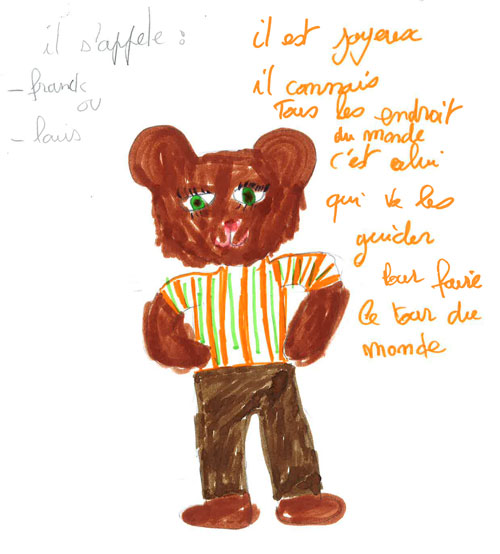 il s'appele :
- franck
ou
- louis
il est joyeux
il connais
Tous les endroit
du monde
c'est celui
qui va les
guider
pour faire
le tour du
monde